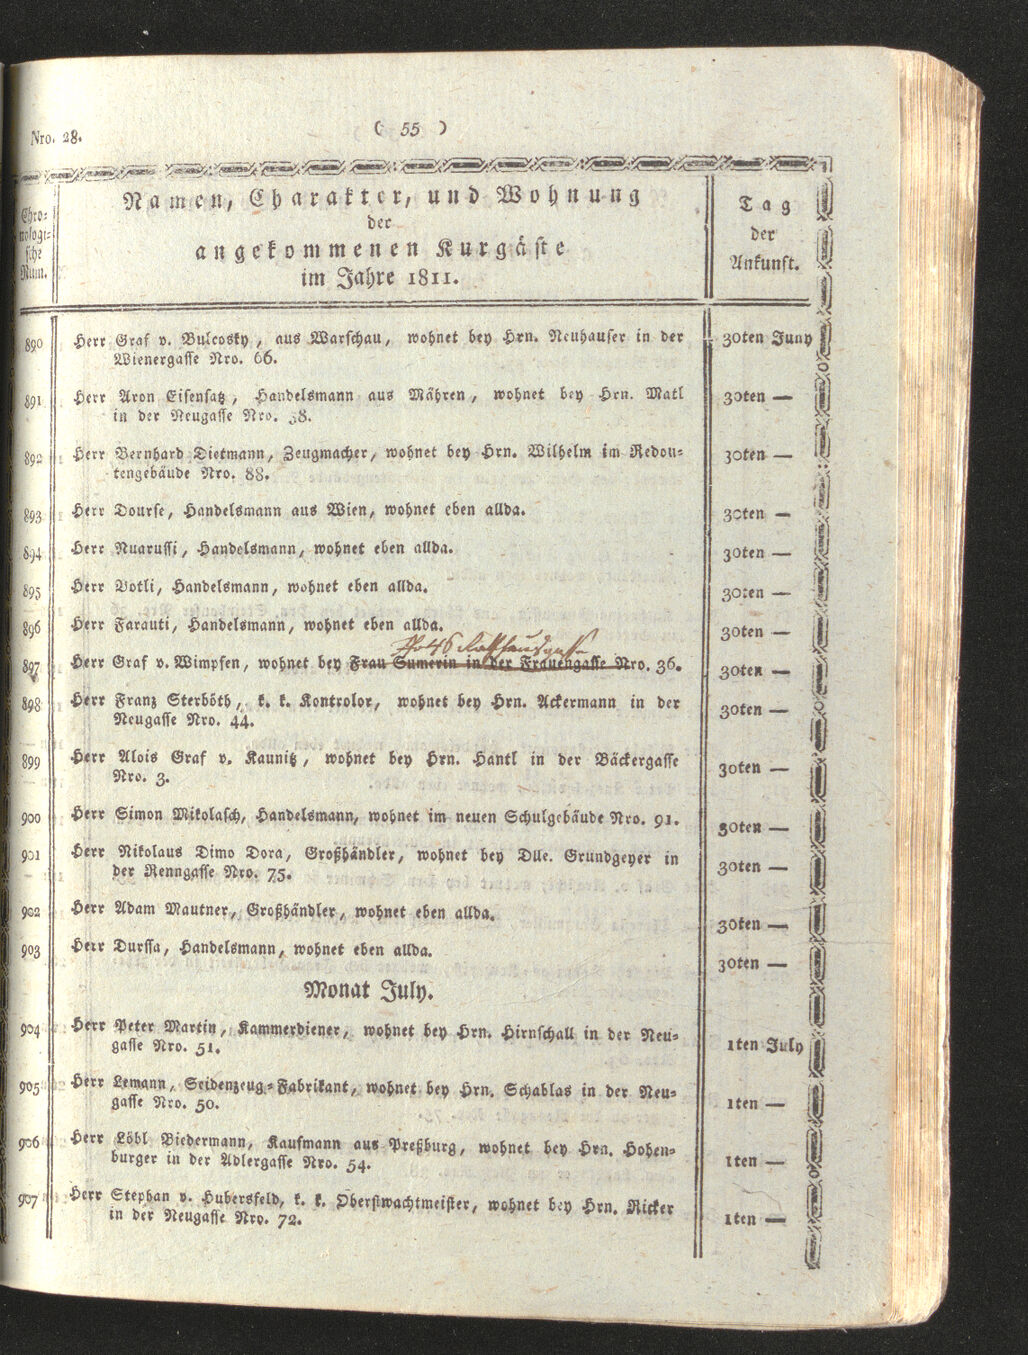 Nro. 28.
( 55 )
Chro=
nologi=
sche
Num.
Namen, Charakter, und Wohnung
der
angekommenen Kurgäste
im Jahre 1811.
Tag
der
Ankunft.
890 Herr Graf v. Bulcosky, aus Warschau, wohnet bey Hrn. Neuhauser in der 30ten Juny
Wienergasse Nro. 66.
891 Herr Aron Eisensatz, Handelsmann aus Mähren, wohnet bey Hrn. Matl 30ten —
in der Neugasse Nro. 38.
892 Herr Bernhard Dietmann, Zeugmacher, wohnet bey Hrn. Wilhelm im Redou= 30ten —
tengebäude Nro. 88.
893 Herr Dourse, Handelsmann aus Wien, wohnet eben allda. 30ten —
894 Herr Nuarussi, Handelsmann, wohnet eben allda. 30ten —
895 Herr Votli, Handelsmann, wohnet eben allda. 30ten —
896 Herr Farauti, Handelsmann, wohnet eben allda. 30ten —
897 Herr Graf v. Wimpfen, wohnet bey Frau Sumerin in der Frauengasse Nro. 36. 30ten —
898 Herr Franz Sterböth, k. k. Kontrolor, wohnet bey Hrn. Ackermann in der 30ten —
Neugasse Nro. 44.
899 Herr Alois Graf v. Kaunitz, wohnet bey Hrn. Hantl in der Bäckergasse 30ten —
Nro. 3.
900 Herr Simon Mikolasch, Handelsmann, wohnet im neuen Schulgebäude Nro. 91. 30ten —
901 Herr Nikolaus Dimo Dora, Großhändler, wohnet bey Dlle. Grundgeyer in 30ten —
der Renngasse Nro. 75.
902 Herr Adam Mautner, Großhändler, wohnet eben allda. 30ten —
903 Herr Durssa, Handelsmann, wohnet eben allda. 30ten —
Monat July.
904 Herr Peter Martin, Kammerdiener, wohnet bey Hrn. Hirnschall in der Neu= 1ten July
gasse Nro. 51.
905 Herr Lemann, Seidenzeug=Fabrikant, wohnet bey Hrn. Schablas in der Neu= 1ten —
gasse Nro. 50.
906 Herr Löbl Biedermann, Kaufmann aus Preßburg, wohnet bey Hrn. Hohen= 1ten —
burger in der Adlergasse Nro. 54.
907 Herr Stephan v. Hubersfeld, k. k. Oberstwachtmeister, wohnet bey Hrn. Ricker 1ten —
in der Neugasse Nro. 72.